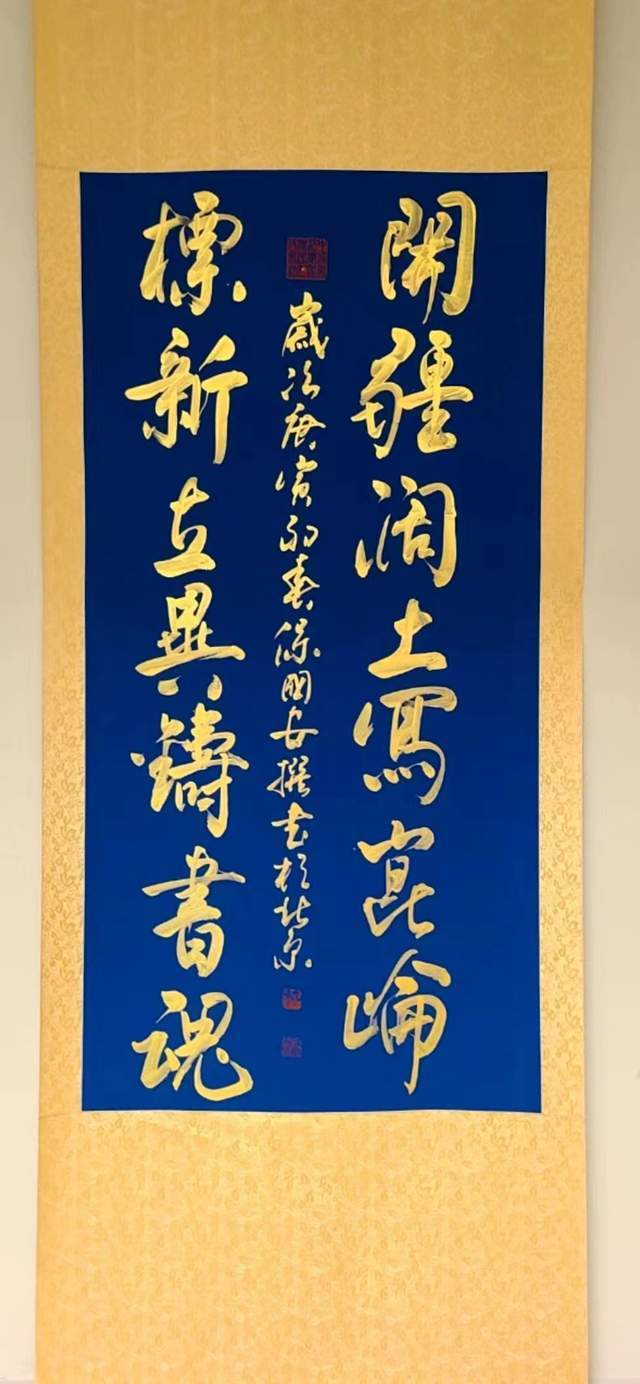 開疆阔土寫崑崙
標新立異鑄書魂
歲次庚寅初春保國安撰书於北京